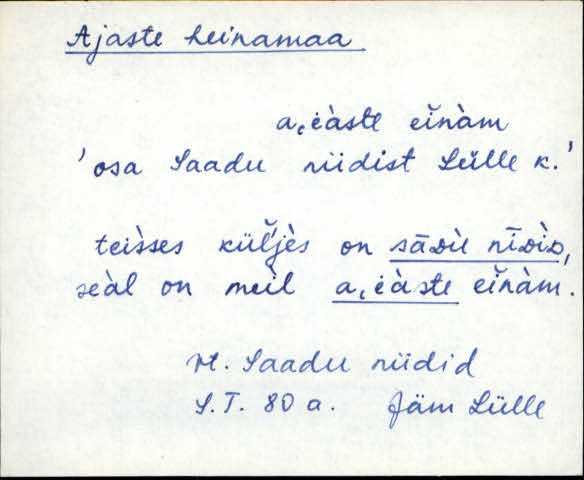 Ajaste heinamaa
a˛i̯àste eĭnàm
'osa Saadu niidist Lülle k.'
teìsses küĺjès on sāᴅù nīᴅìᴅ,
seàl on meìl a˛i̯àste eĭnàm.
vt. Saadu niidid
S.T. 80 a. Jäm Lülle